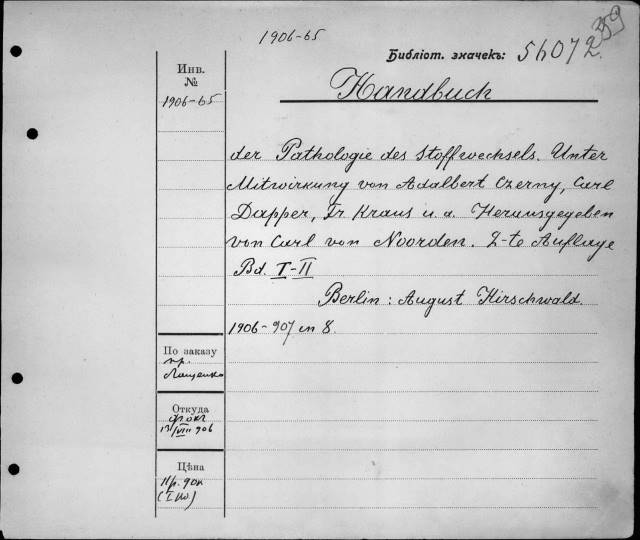 1906-65
Библіот. значекъ: 56072
Инв.
№
1906-65
Handbuch
der Pathologie des Stoffwechsels. Unter
Mitwirkung von Adalbert Czerny, Carl
Dapper, Fr. Kraus u. a. Herausgegeben
von Carl von Noorden. 2-te Auflage
Bd. I-II
Berlin: August Hirschwald.
1906-907 in 8.
По заказу
пр.
Лащенко
Откуда
13/VIII 906
Цѣна
11 р. 90 к